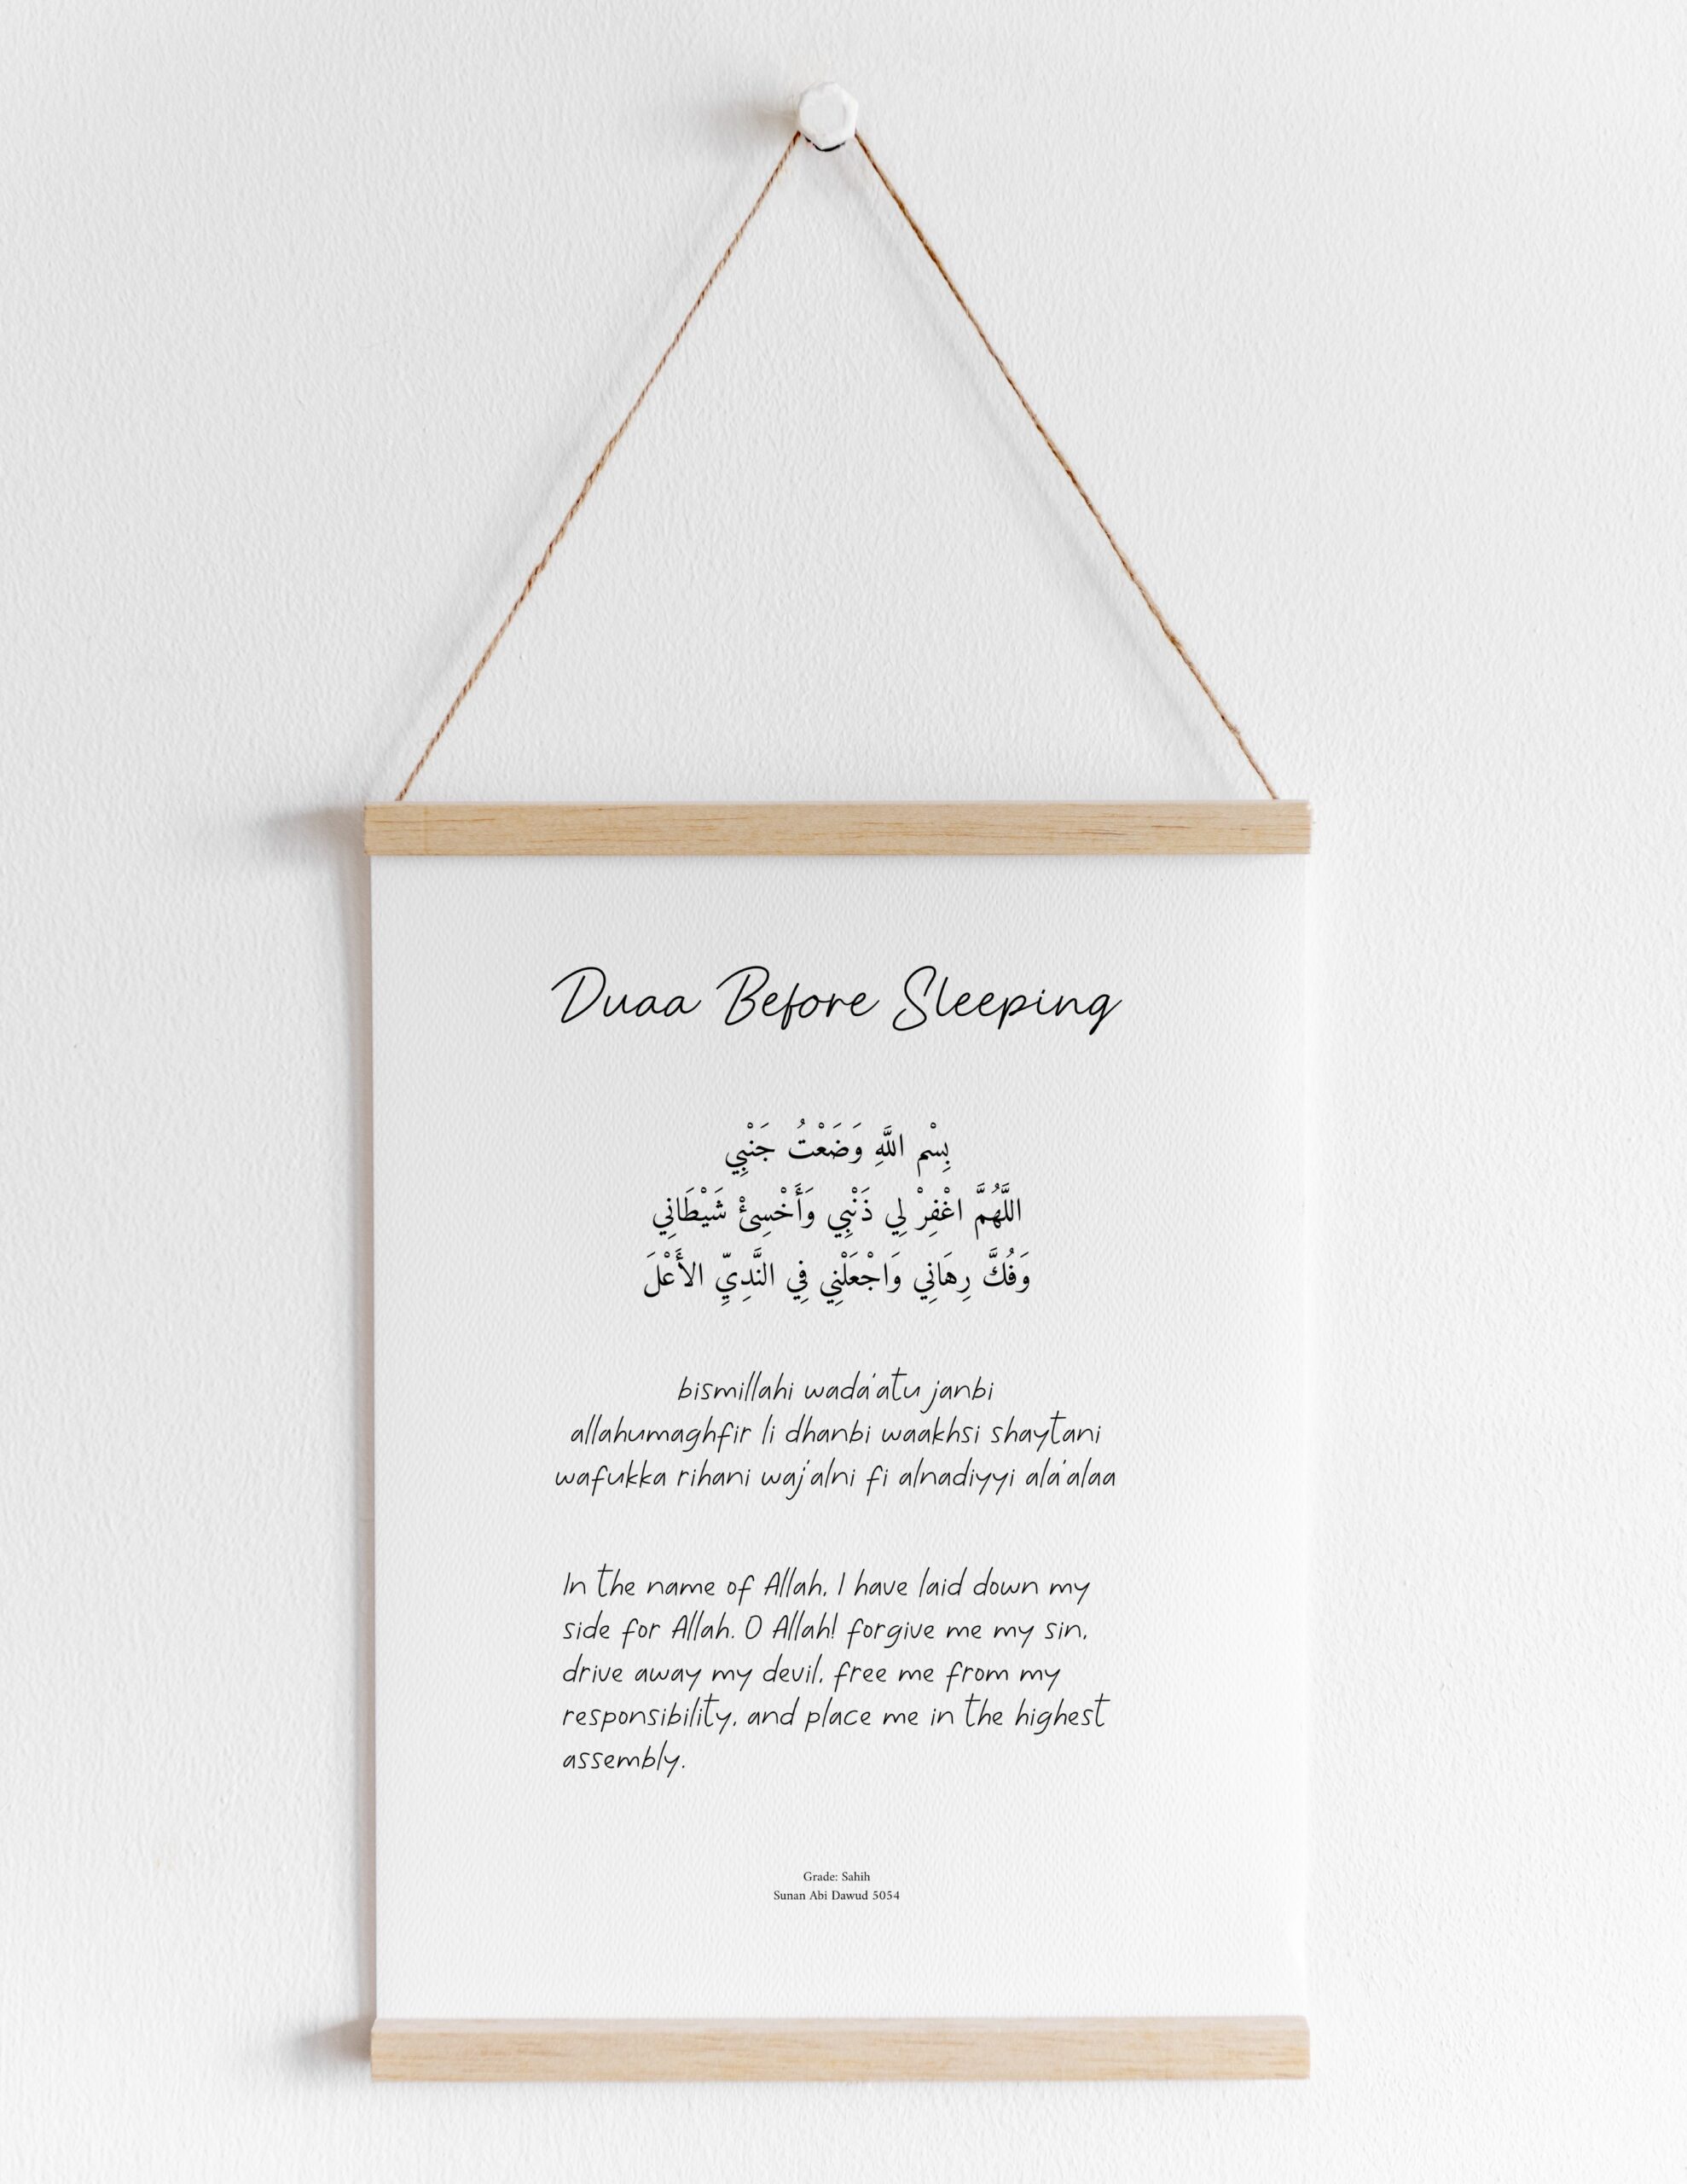 Duaa Before Sleeping
بِسْم اللَّهِ وَضَعْتُ جَنْبِي
اللَّهُمَّ اغْفِرْ لِي ذَنْبِي وَأَخْسِئْ شَيْطَانِي
وَفُكَّ رِهَانِي وَاجْعَلْنِي فِي النَّدِيِّ الأَعْلَ
bismillahi wada'atu janbi
allahumaghfir li dhanbi waakhsi shaytani
wafukka rihani waj'alni fi alnadiyyi ala'alaa
In the name of Allah, I have laid down my
side for Allah. O Allah! forgive me my sin,
drive away my devil, free me from my
responsibility, and place me in the highest
assembly.
Grade: Sahih
Sunan Abi Dawud 5054